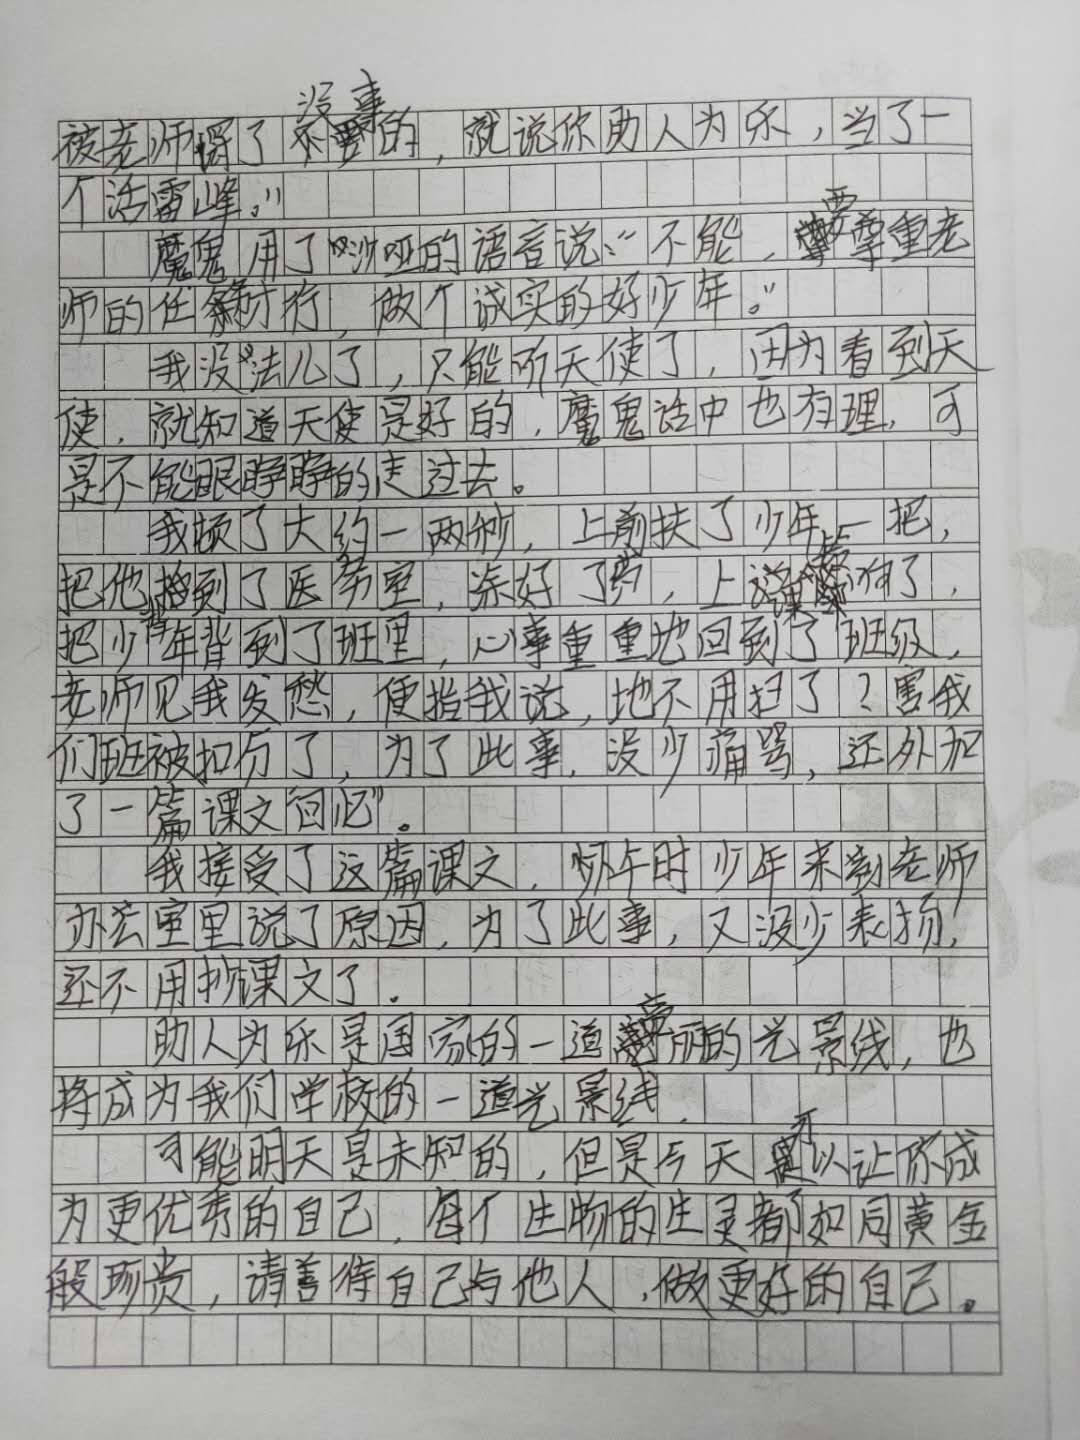 被老师骂了没事的，就说你助人为乐，当了一
个活雷峰。”
魔鬼用了沙哑的语言说：“不能，要尊重老
师的任务才行，做个诚实的好少年。”
我没法儿了，只能听天使了，因为看到天
使，就知道天使是好的，魔鬼话中也有理，可
是不能眼睁睁的走过去。
我顿了大约一两秒，上前扶了少年一把，
把他背到了医务室，涂好了药，上课铃响了，
把少年背到了班里，心事重重地回到了班级，
老师见我发愁，便指我说，地不用扫了？害我
们班被扣分了，为了此事，没少痛骂，还外加
了一篇课文“回忆”。
我接受了这篇课文，下午时少年来到老师
办公室里说了原因，为了此事，又没少表扬，
还不用抄课文了。
助人为乐是国家的一道亮丽的光景线，也
将成为我们学校的一道光景线.
可能明天是未知的，但是今天可以让你成
为更优秀的自己，每个生物的生灵都如同黄金
般珍贵，请善待自己与他人，做更好的自己。